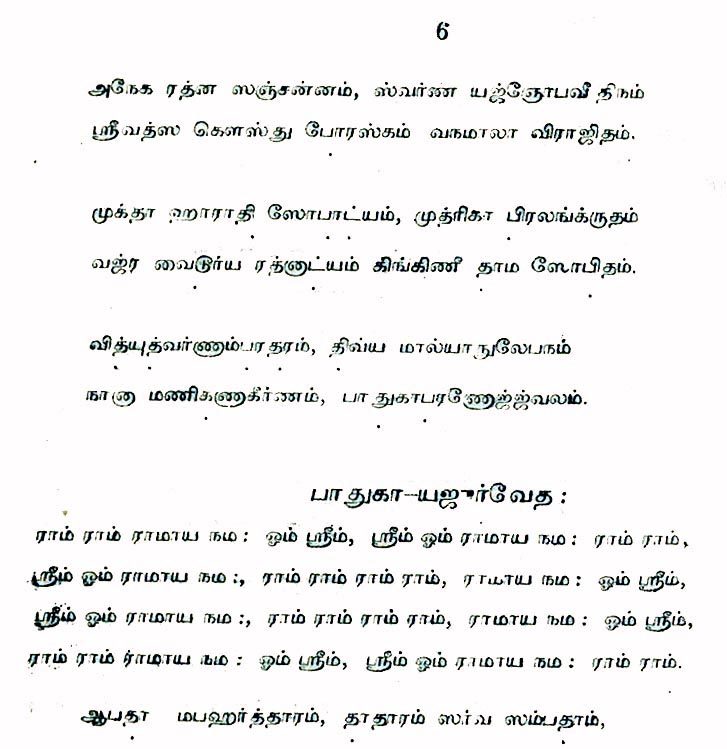 6
அநேக ரத்ன ஸஞ்சன்னம், ஸ்வர்ண யஜ்ஞோபவீதிநம்
ஸ்ரீவத்ஸ கௌஸ்து போரஸ்கம் வநமாலா விராஜிதம்.
முக்தா ஹாராதி ஸோபாட்யம், முத்ரிகா பிரலங்க்ருதம்
வஜ்ர வைடூர்ய ரத்னாட்யம் கிங்கிணீ தாம ஸோபிதம்.
வித்யுத்வர்ணாம்பரதரம், திவ்ய மால்யாநுலேபநம்
நானா மணிகணாகீர்ணம், பாதுகாபரணோஜ்ஜ்வலம்.
பாதுகா—யஜுர்வேத :
ராம் ராம் ராமாய நம : ஓம் ஸ்ரீம், ஸ்ரீம் ஓம் ராமாய நம : ராம் ராம்,
ஸ்ரீம் ஓம் ராமாய நம :, ராம் ராம் ராம் ராம், ராமாய நம : ஓம் ஸ்ரீம்,
ஸ்ரீம் ஓம் ராமாய நம :, ராம் ராம் ராம் ராம், ராமாய நம : ஓம் ஸ்ரீம்,
ராம் ராம் ராமாய நம : ஓம் ஸ்ரீம், ஸ்ரீம் ஓம் ராமாய நம : ராம் ராம்.
ஆபதா மபஹர்த்தாரம், தாதாரம் ஸர்வ ஸம்பதாம்,